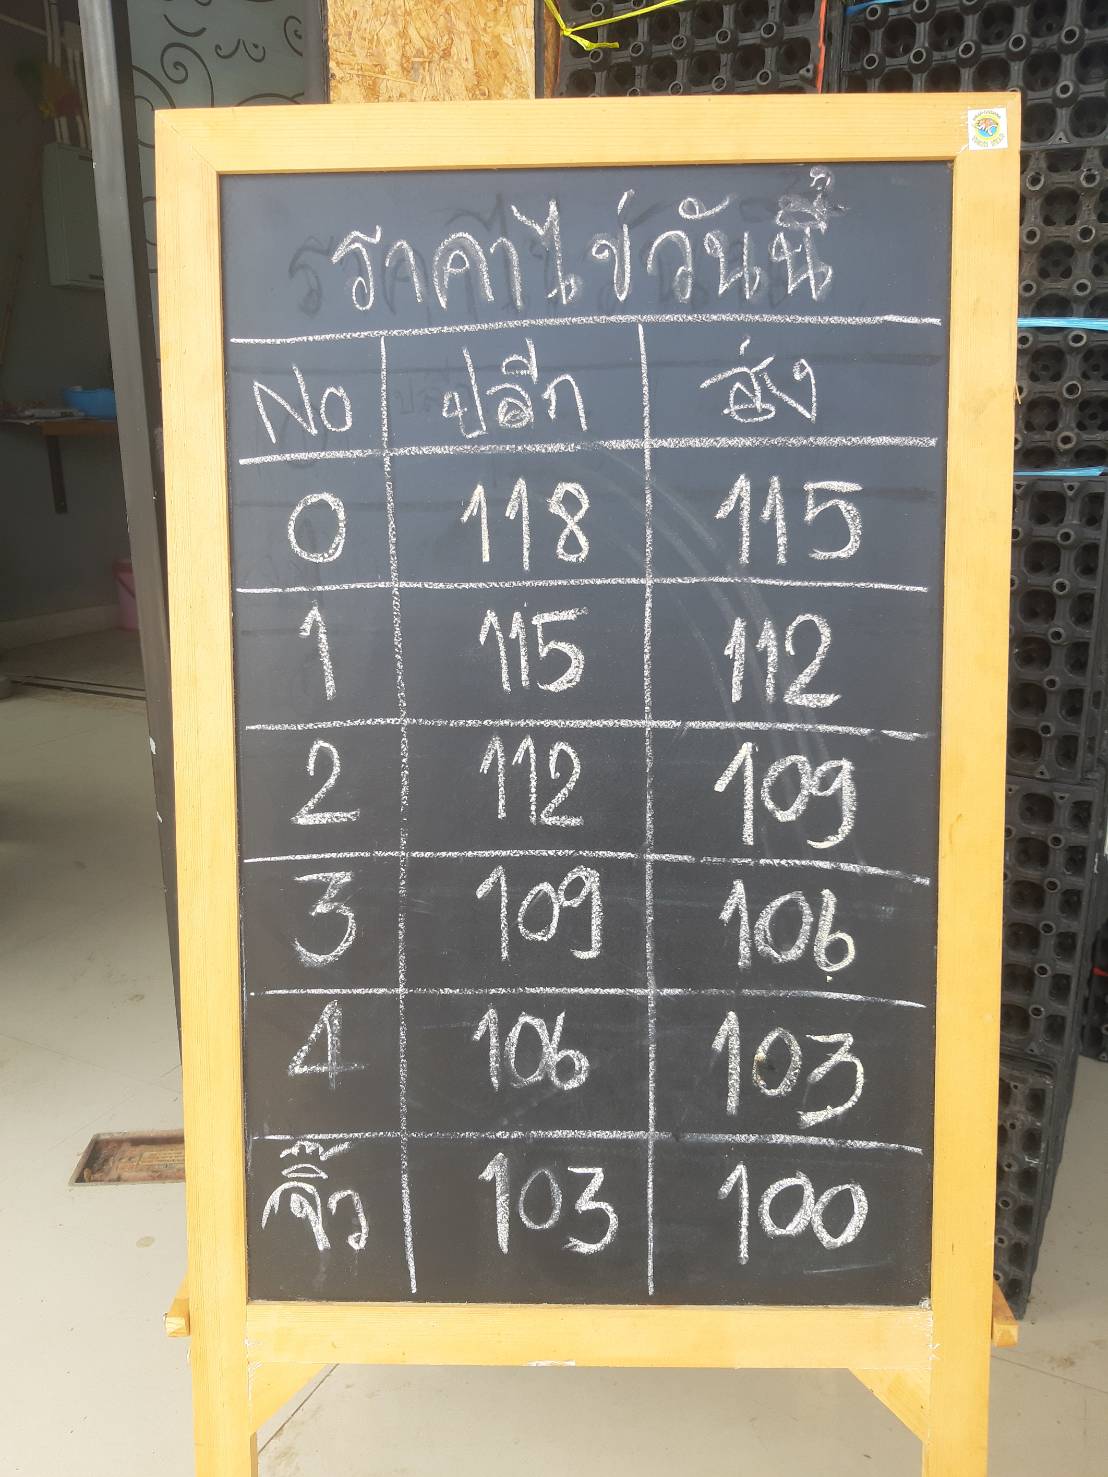 ราคาไข่วันนี้
No ปลีก ส่ง
0 118 115
1 115 112
2 112 109
3 109 106
4 106 103
จิ๋ว 103 100